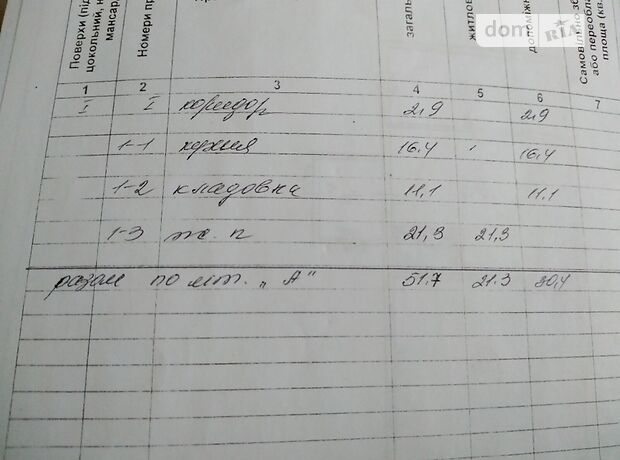 Поверхи (під
цокольний, н
мансар,
Номери пр
загаль
житлов
допоміжн
Самовільно зб
або переобла
площа (кв.
dom RIA
1 2 3 4 5 6 7
I I коридор 2,9 2,9
1-1 кухня 16.4 16,4
1-2 кладовка 11,1 11.1
1-3 ж. к 21,3 21,3
разом по літ. „А" 51.7 21.3 30,4